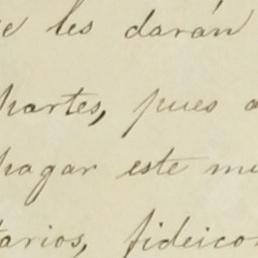 e les darán
partes, pues a
pagar este mu
tarios, fideicom